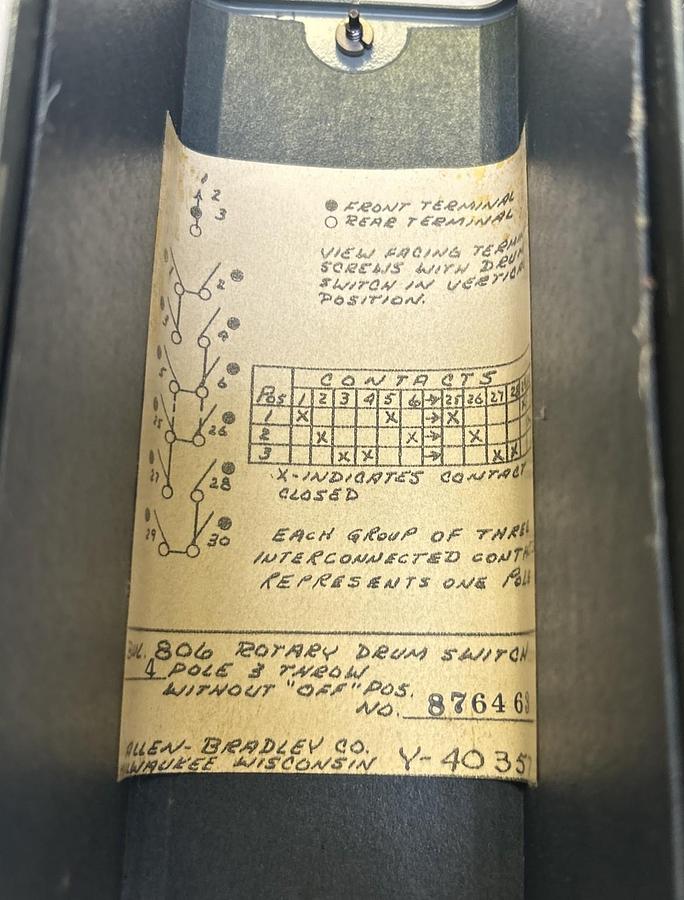 1
2
3
● FRONT TERMINAL
○ REAR TERMINAL
VIEW FACING TERM
SCREWS WITH DRUM
SWITCH IN VERTICA
POSITION.
1 2
3 4
5 6
25 26
27 28
29 30
CONTACTS
POS 1 2 3 4 5 6 → 25 26 27 28
1 X X → X
2 X X → X
3 X X → X X
X-INDICATES CONTACT
CLOSED
EACH GROUP OF THREE
INTERCONNECTED CONTAC
REPRESENTS ONE POLE
BUL. 806 ROTARY DRUM SWITCH
4 POLE 3 THROW
WITHOUT "OFF" POS.
NO. 876469
ALLEN-BRADLEY CO.
MILWAUKEE WISCONSIN Y-40357